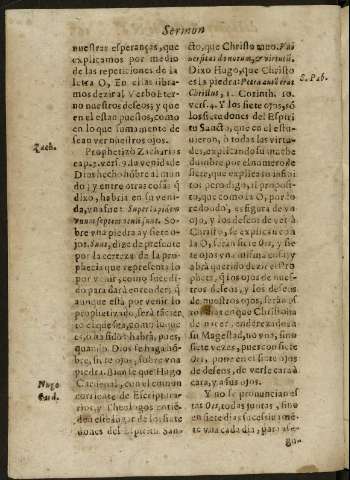 Sermon
nuestras esperanças, que
explicamos por medio
de las repeticiones de la
letra O, En ellas llama-
mos dezir al Verbo Eter-
no nuestros deseos; y que
en el estan puestos, como
en lo que sumamente de
sean ver nuestros ojos.
Zach.
Prophetizò Zacharias
cap. 3. vers. 9. la venida de
Dios hecho hõbre al mun
do; y entre otras cosas q̃
dixo, habria en su veni-
da, vna fue: Super lapidem
vnum septem oculi sunt. So-
bre vna piedra ay siete o-
jos. Sunt, dize de presente
por la certeza de la pro-
phecia que representa lo
por venir, como sucedi-
do para dàr à entender; q̃
aunque està por venir lo
prophetizado, serà tã cier
to el que sea, como lo que
es, ò ha sido: habrà, pues,
quando Dios se haga hõ-
bre, siete ojos, sobre vna
piedra. Blanse que Hugo
Hugo
Card.
Cardenal, con el comun
corriente de Escriptura-
rios, y Theologos entiē-
den este lugar de los siete
dones del Espiritu San-
cto, que Christo tuvo.
Dixo Hugo, que Christo
S. Pab.
es la piedra: Petra autē erat
Christus, 1. Corinth. 10.
vers. 4. Y los siete ojos, sõ
los siete dones del Espiri
tu Sancto, que en el estu-
vieron, ò todas las virtu-
des, explicando su muche
dumbre por el numero sie
te, que explica lo infini-
to: pero digo, à proposi-
to, que como la O, por lo
redondo, es figura de vn
ojo, y los deseos de ver à
Christo, se explican con
la O, seràn siete Oes, y sie
te ojos vna misma cosa; y
habrà querido dezir el Pro
pheta, q̃ los ojos de nues-
tros deseos, y los deseos
de nuestros ojos, seràn
en que Christo ha
de nacer, enderezando à
su Magestad, no vna, sino
siete vezes, pues con siete
Oes, pone en el siete ojos
de deseos, de verle cara à
cara, y à sus ojos.
Y no se pronuncian es
tas Oes, todas juntas, sino
en siete dias sucessivamē-
te vna cada dia, para ale-